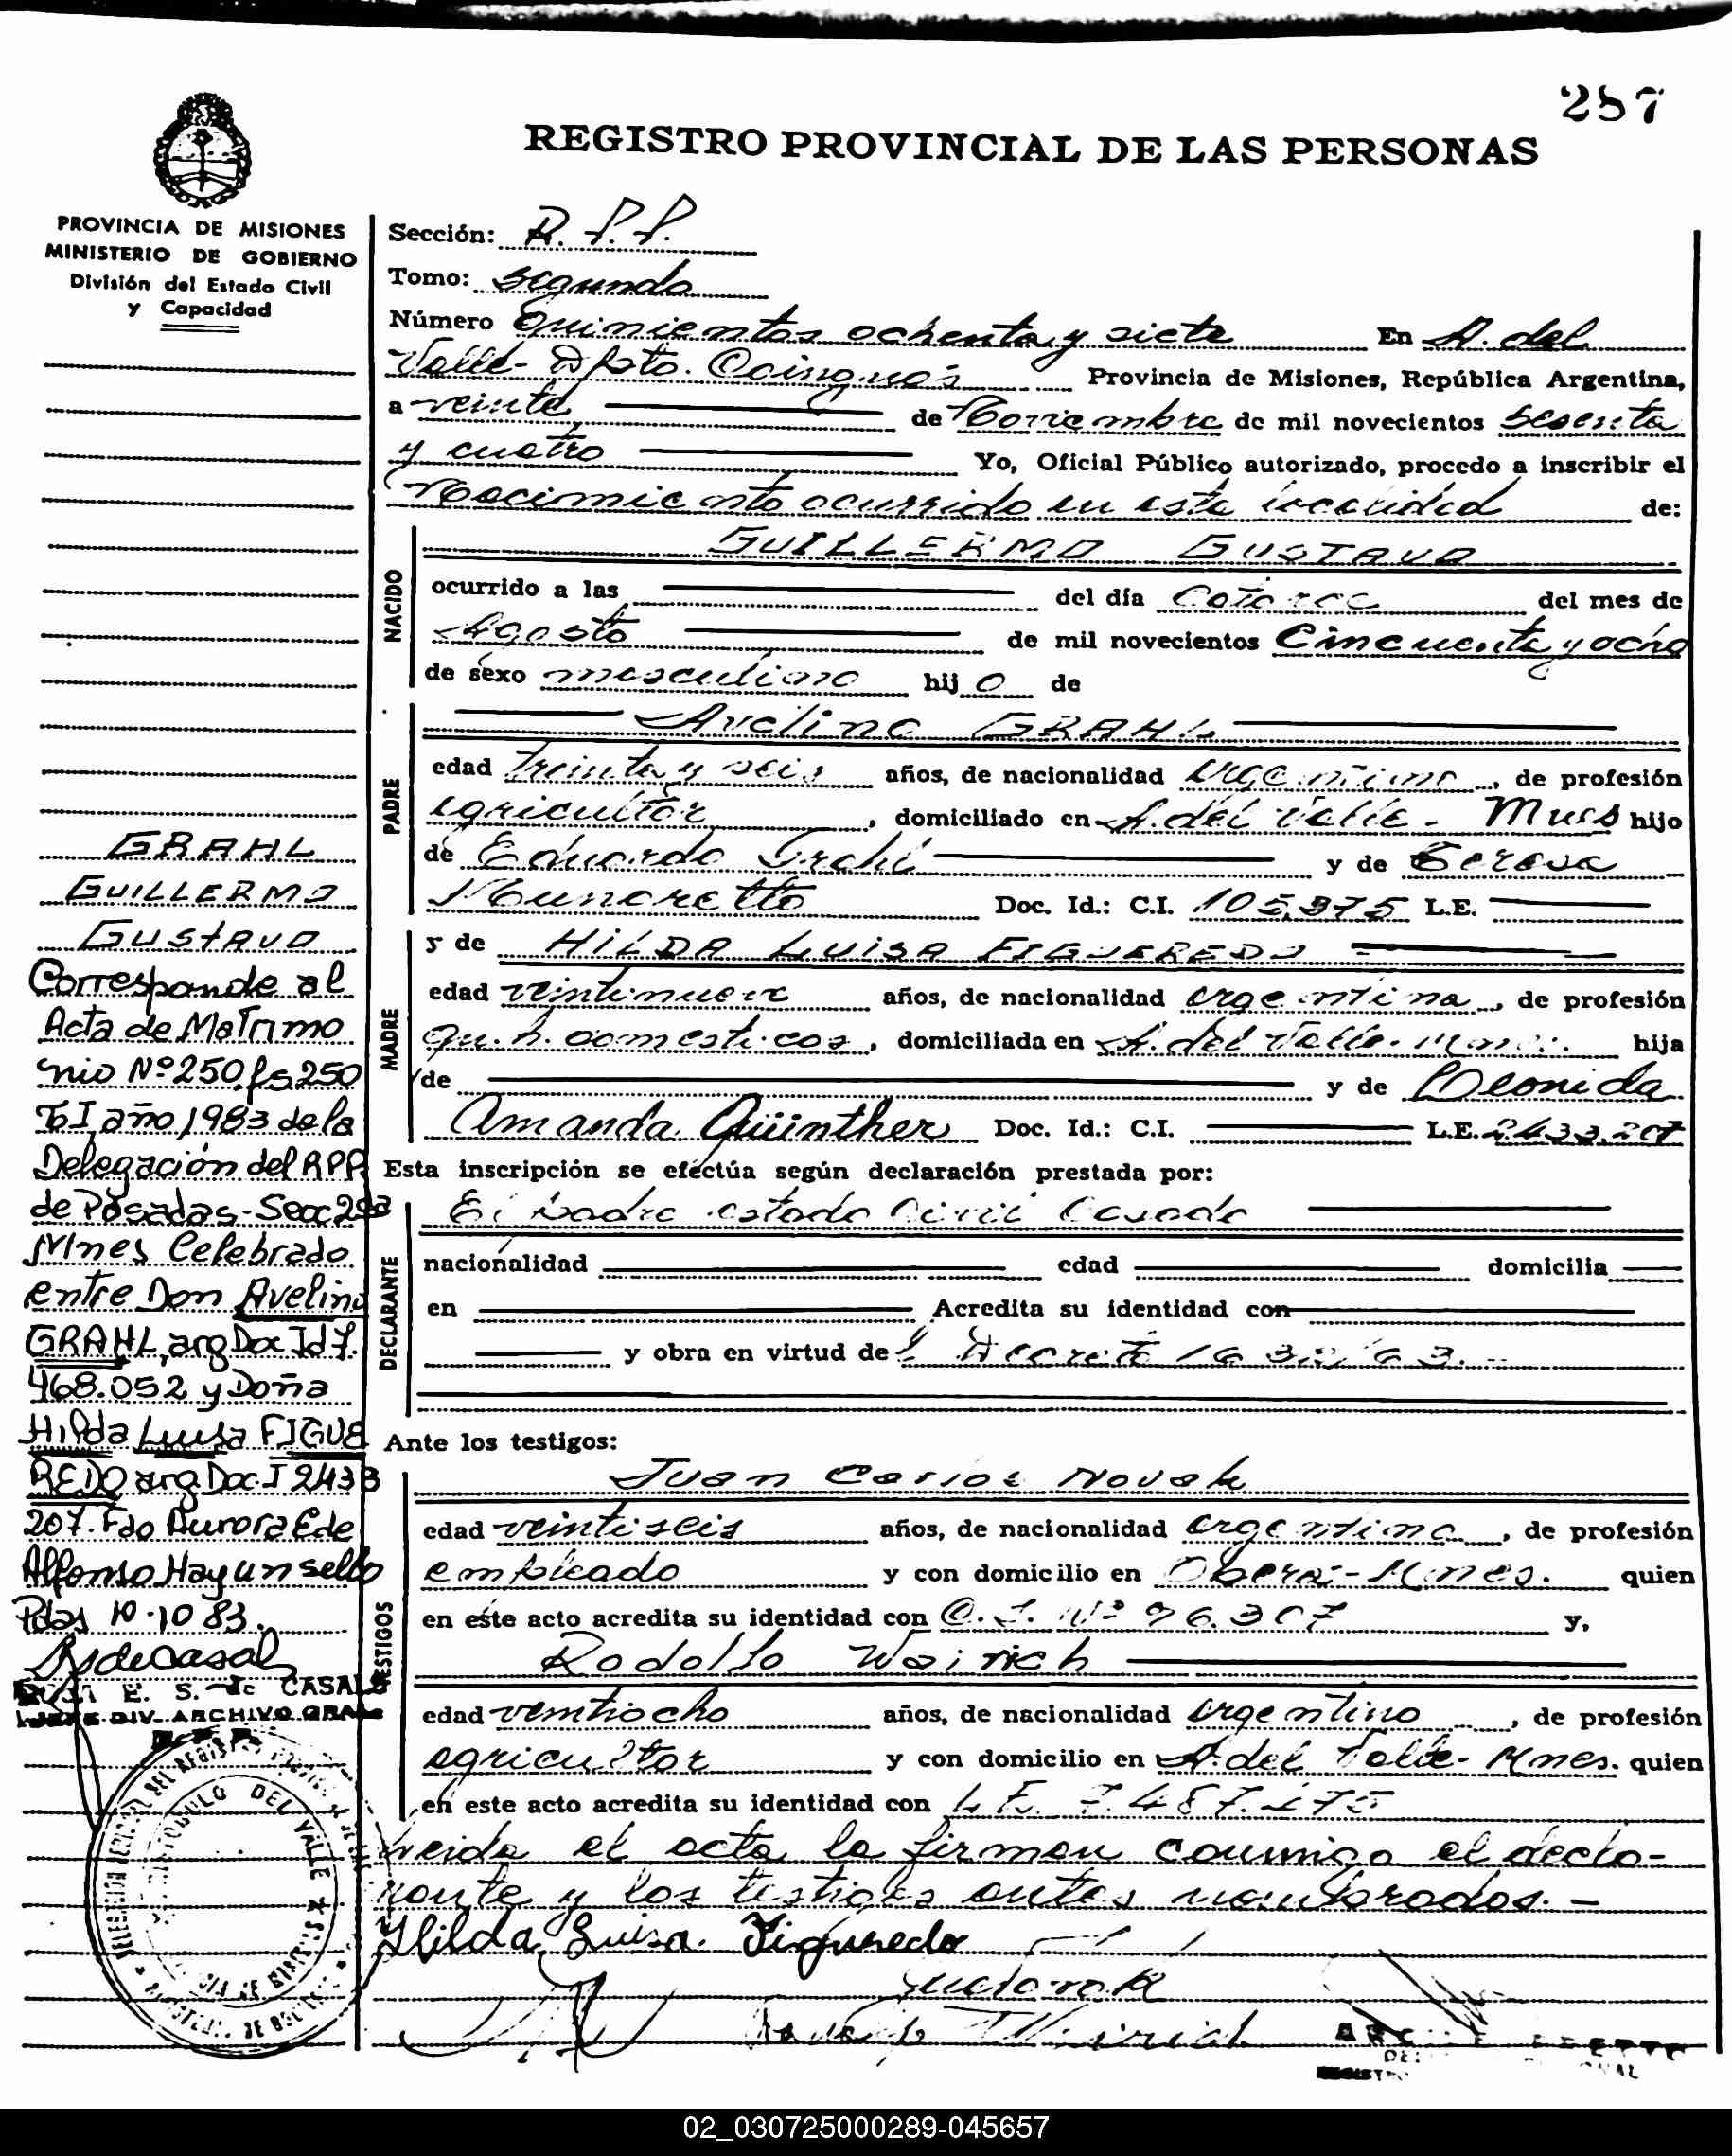 287
REGISTRO PROVINCIAL DE LAS PERSONAS
PROVINCIA DE MISIONES
MINISTERIO DE GOBIERNO
División del Estado Civil
y Capacidad
Sección: R. P. P.
Tomo: segundo
Número quinientos ochenta y siete En A. del
Valle - Dpto. Cainguás Provincia de Misiones, República Argentina,
a veinte de Noviembre de mil novecientos sesenta
y cuatro Yo, Oficial Público autorizado, procedo a inscribir el
Nacimiento ocurrido en esta localidad de:
NACIDO
GUILLERMO GUSTAVO
ocurrido a las del día Catorce del mes de
Agosto de mil novecientos Cincuenta y ocho
de sexo masculino hijo de
PADRE
Avelino GRAHL
edad treinta y seis años, de nacionalidad argentino, de profesión
agricultor, domiciliado en A. del Valle - Mnes hijo
de Eduardo Grahl y de Teresa
Munaretto Doc. Id.: C.I. 105.375 L.E.
MADRE
y de HILDA LUISA FIGUEREDO
edad veintinueve años, de nacionalidad argentina, de profesión
qu. h. domesticos, domiciliada en A. del Valle - Mnes. hija
de y de Leonida
Amanda Güinther Doc. Id.: C.I. L.E. 2.433.207
Esta inscripción se efectúa según declaración prestada por:
DECLARANTE
El padre estado civil Casado
nacionalidad edad domicilia
en Acredita su identidad con
y obra en virtud del Decreto
Ante los testigos:
TESTIGOS
Juan Carlos Novak
edad veintiseis años, de nacionalidad argentina, de profesión
empleado y con domicilio en Oberá - Mnes. quien
en este acto acredita su identidad con C. I. Nº 96.307 y,
Rodolfo Weirich
edad veintiocho años, de nacionalidad argentino, de profesión
agricultor y con domicilio en A. del Valle - Mnes. quien
en este acto acredita su identidad con L. E. 7.487.175
Leida el acta la firman conmigo el decla-
rante y los testigos antes nombrados. -
Hilda Luisa. Figueredo
GRAHL
GUILLERMO
GUSTAVO
Corresponde al
Acta de Matrimo
nio Nº 250 fs 250
Tº I año 1983 de la
Delegación del RPP
de Posadas - Secc 2da
Mnes Celebrado
entre Don Avelino
GRAHL, arg Doc Id 7.
468.052 y Doña
Hilda Luisa FIGUE
REDO arg Doc. I 2433
207. Fdo Aurora E de
Alfonso Hay un sello
Pdas 10-10 83.
E. S. de CASAL
JEFE DIV. ARCHIVO GRAL
DEL VALLE
02_030725000289-045657